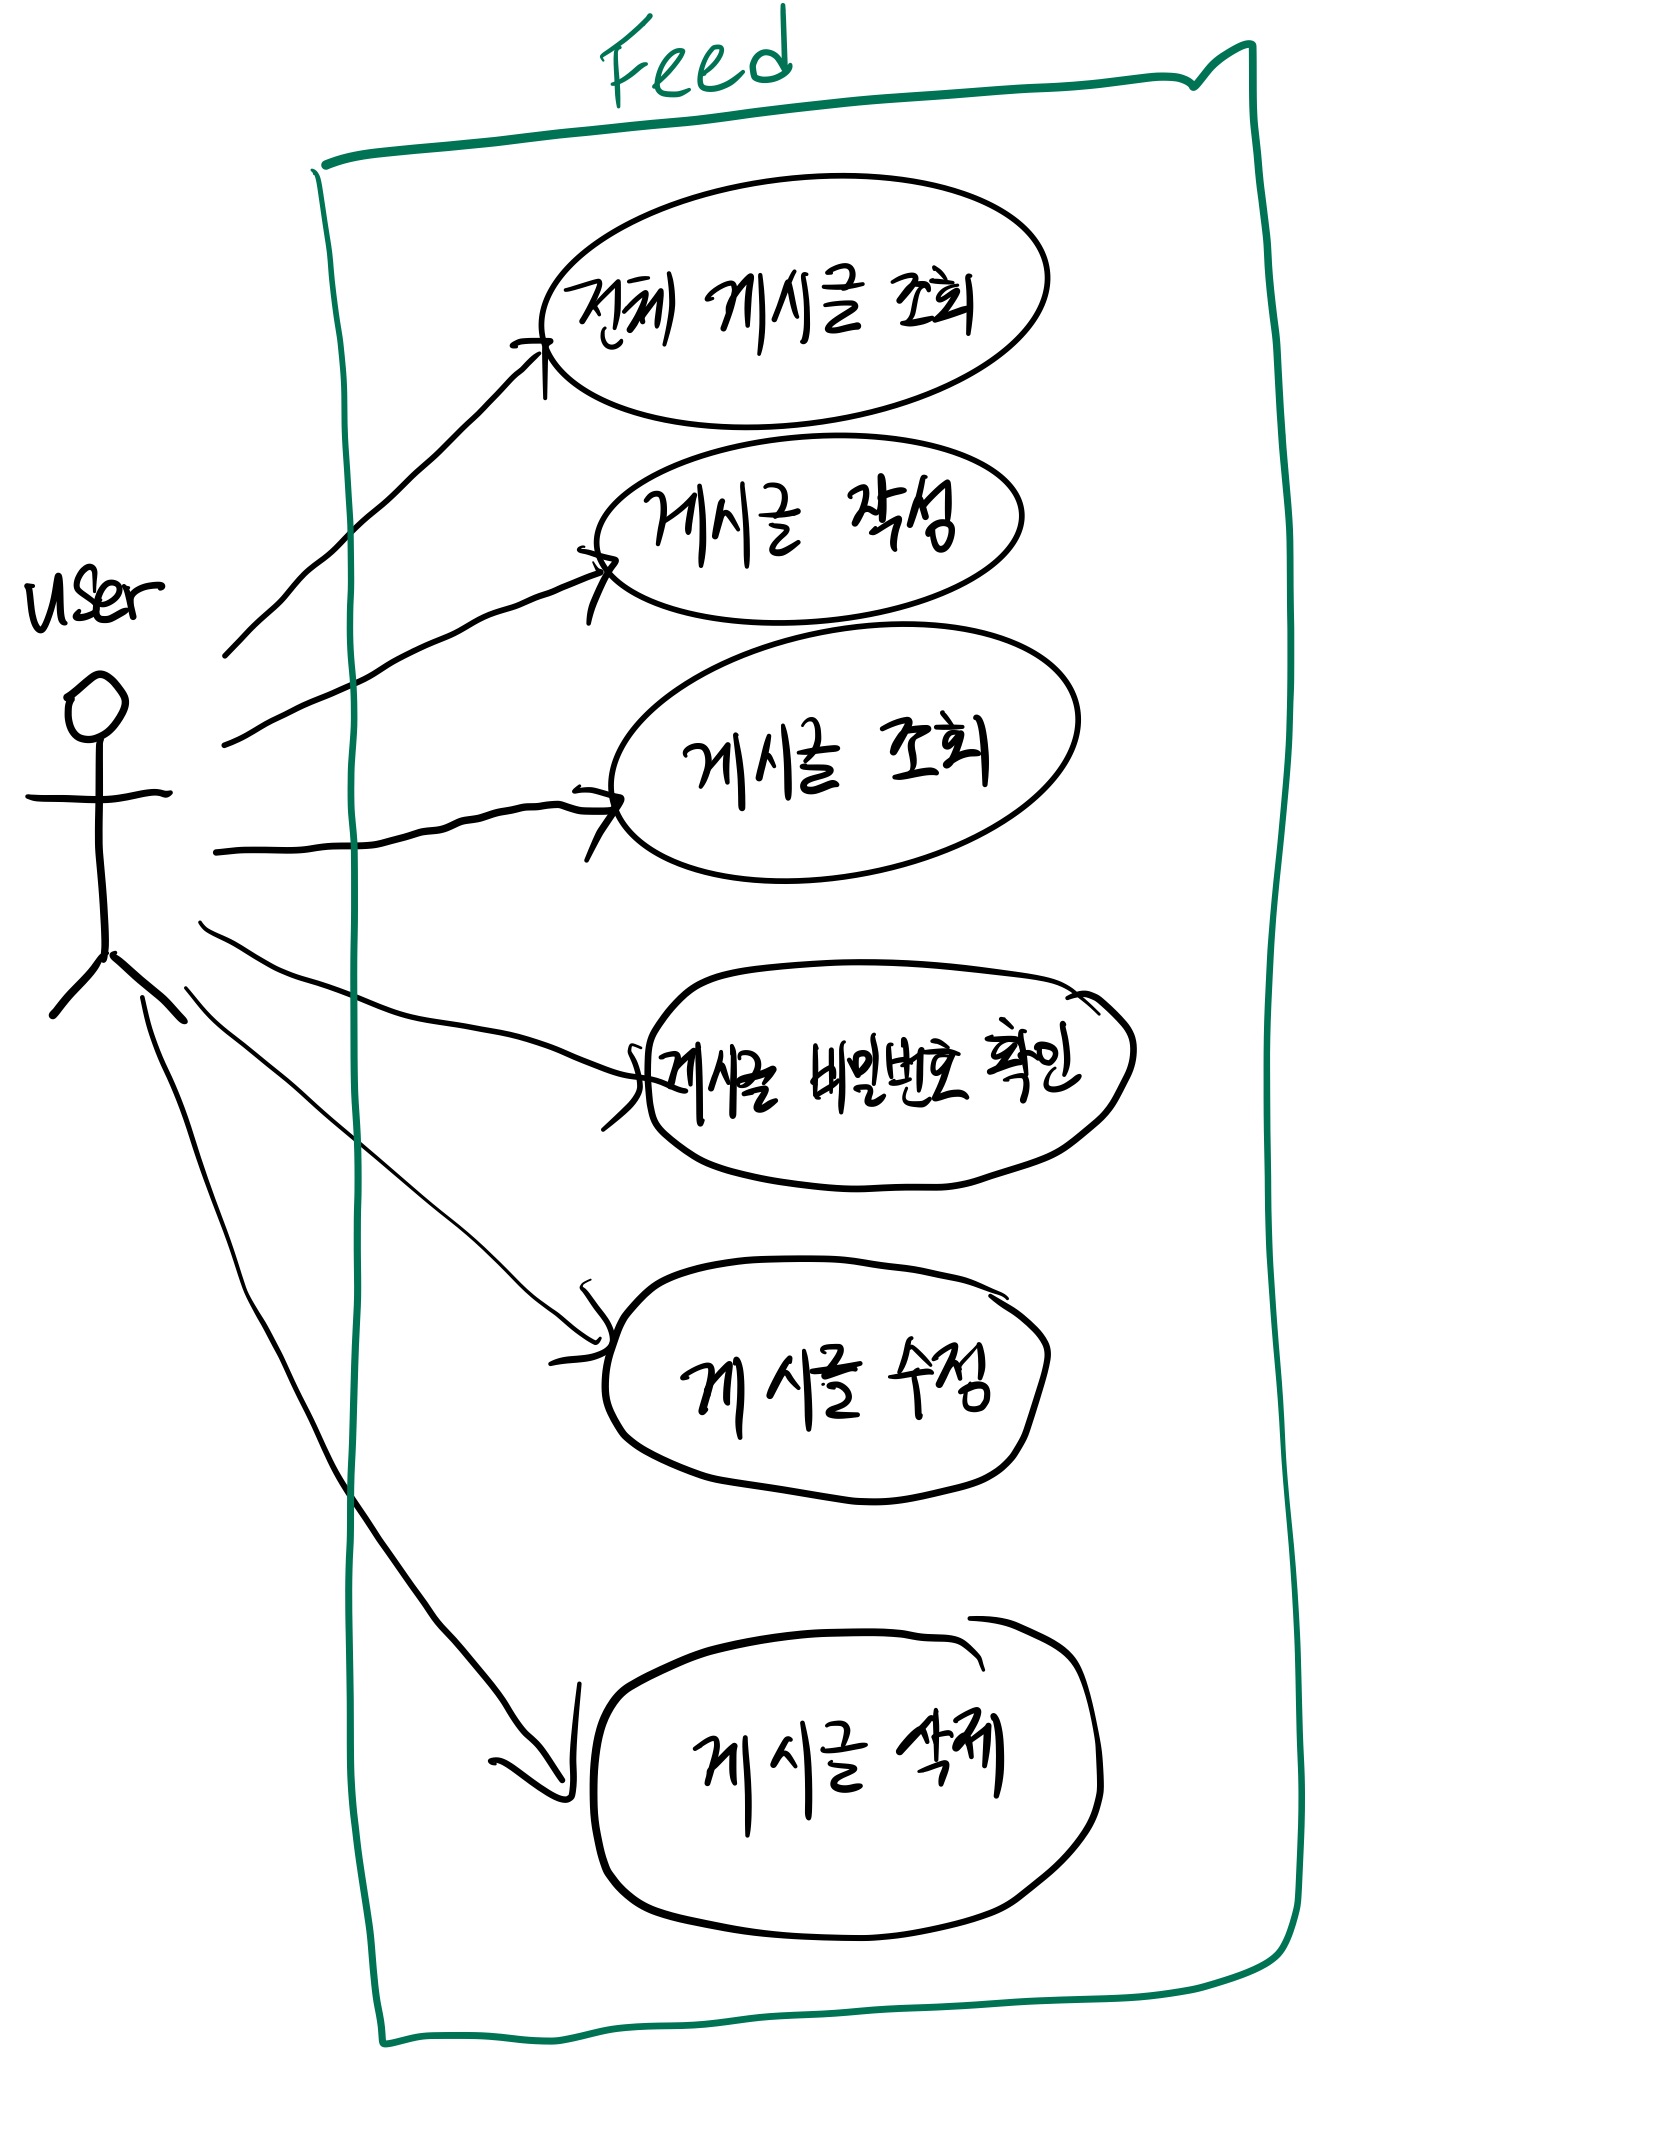 Feed
전체 게시글 조회
게시글 작성
user
게시글 조회
게시글 비밀번호 확인
게시글 수정
게시글 삭제